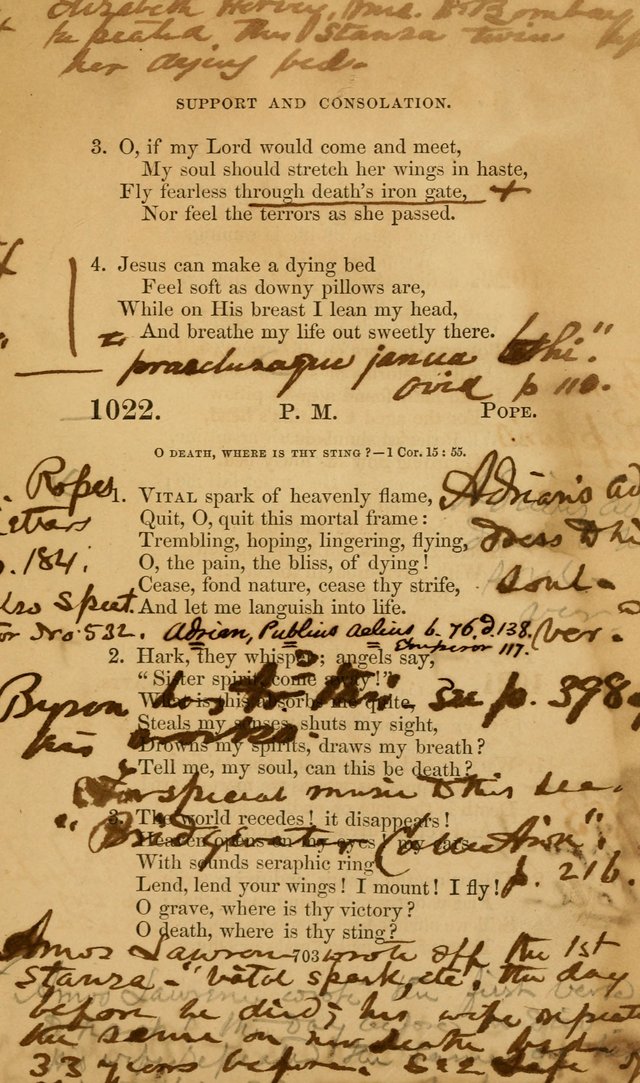 Elizabeth Hervey, Bombay
repeated this Stanza twice
her dying bed.
SUPPORT AND CONSOLATION.
3. O, if my Lord would come and meet,
My soul should stretch her wings in haste,
Fly fearless through death's iron gate,
Nor feel the terrors as she passed.
4. Jesus can make a dying bed
Feel soft as downy pillows are,
While on His breast I lean my head,
And breathe my life out sweetly there.
janua
Ovid p 110.
1022. P. M. POPE.
O DEATH, WHERE IS THY STING?—1 Cor. 15: 55.
1. VITAL spark of heavenly flame,
Quit, O, quit this mortal frame:
Trembling, hoping, lingering, flying,
O, the pain, the bliss, of dying!
Cease, fond nature, cease thy strife,
And let me languish into life.
Popes
184.
Also Spect.
for No. 532.
Adrian's ad
dress to hi
soul.
ver.
Adrian, Publius Aelius b. 76, d. 138.
Emperor 117.
2. Hark, they whisper; angels say,
"Sister spirit, come away!"
What is this absorbs me quite,
Steals my senses, shuts my sight,
Drowns my spirits, draws my breath?
Tell me, my soul, can this be death?
Byron see p. 398
his works.
For special music to this see
3. The world recedes! it disappears!
Heaven opens on my eyes! my ears
With sounds seraphic ring:
Lend, lend your wings! I mount! I fly!
O grave, where is thy victory?
O death, where is thy sting?
p. 216.
703
Amos Lawrence wrote off the 1st
Stanza - "Vital spark, etc. the day
before he died; his wife repeat
the same on her death bed
33 years before. See Life